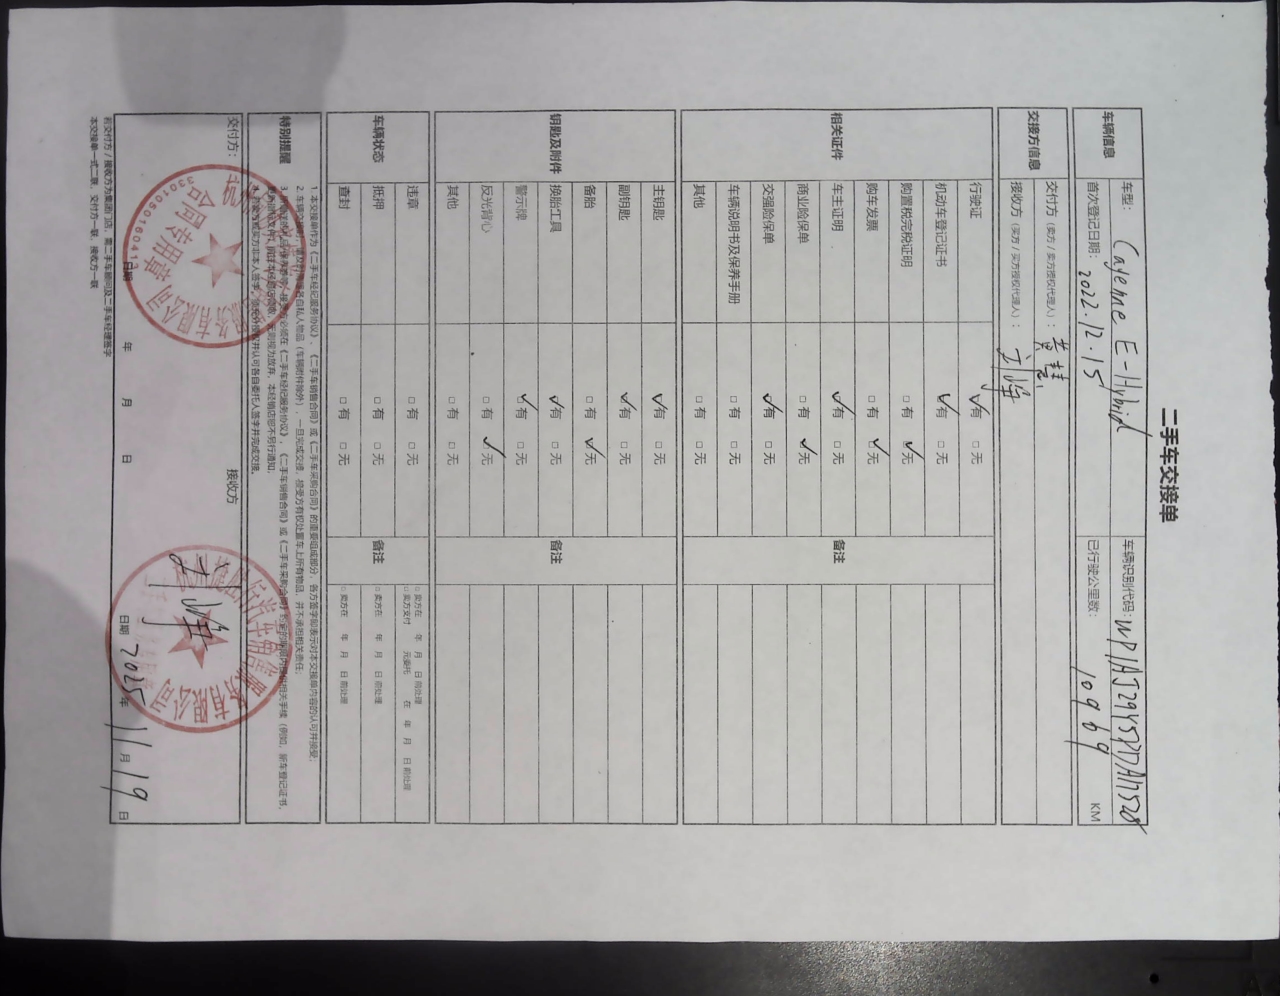 二手车交接单
车辆信息
车型： Cayenne E-Hybrid 车辆识别代码：
首次登记日期： 2022.12.15 已行驶公里数： 10969 KM
交接方信息
交付方（卖方/卖方授权代理人）： 黄慧
接收方（买方/买方授权代理人）：
相关证件
备注
行驶证 ☑有 □无
机动车登记证书 ☑有 □无
购置税完税证明 □有 ☑无
购车发票 □有 ☑无
车主证明 ☑有 □无
商业险保单 □有 ☑无
交强险保单 ☑有 □无
车辆说明书及保养手册 □有 □无
其他 □有 □无
钥匙及附件
备注
主钥匙 ☑有 □无
副钥匙 ☑有 □无
备胎 □有 ☑无
换胎工具 ☑有 □无
警示牌 ☑有 □无
反光背心 □有 ☑无
其他 □有 □无
车辆状态
备注
违章 □有 □无 □ 卖方在 年 月 日 前处理
□ 卖方支付 元委托 在 年 月 日 前处理
抵押 □有 □无 □ 卖方在 年 月 日 前处理
查封 □有 □无 □ 卖方在 年 月 日 前处理
特别提醒
1. 本交接单作为《二手车经纪服务协议》、《二手车销售合同》或《二手车采购合同》的重要组成部分，各方签字即表示对本交接单内容的认可并接受；
2. 车辆交接时，请及时清理各自私人物品（车辆附件除外），一旦完成交接，接受方有权处置车上所有物品，并不承担相关责任；
交付方： 接收方
合同专用章
3301050160413
有限公司
日期 年 月 日 日期 2025年 11月 19日
若交付方/接收方为集团门店，需二手车顾问及二手车经理签字
本交接单一式二联，交付方一联，接收方一联